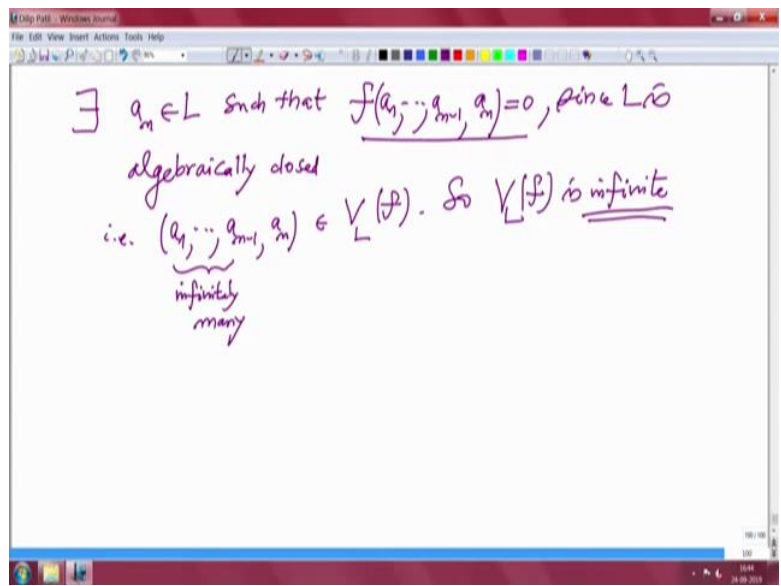 Dilip Patil - Windows Journal
File Edit View Insert Actions Tools Help
∃ a_n ∈ L such that f(a_1, ..., a_{n-1}, a_n) = 0, since L is
algebraically closed
i.e. (a_1, ..., a_{n-1}, a_n) ∈ V_L(f). So V_L(f) is infinite
infinitely
many
100 / 100
100
16:44
24-09-2019